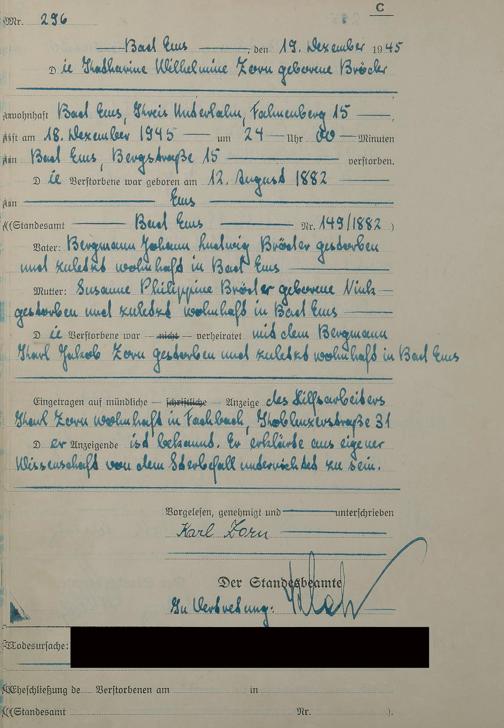 C
Nr. 296
Bad Ems, den 19. Dezember 1945
Die Katharine Wilhelmine Zorn geborene Bröder
wohnhaft Bad Ems, Kreis Unterlahn, Fahnenberg 15,
ist am 18. Dezember 1945 um 24 Uhr 00 Minuten
in Bad Ems, Bergstraße 15 verstorben.
Die Verstorbene war geboren am 12. August 1882
in Ems
(Standesamt Bad Ems Nr. 149/1882)
Vater: Bergmann Johann Ludwig Bröder gestorben
und zuletzt wohnhaft in Bad Ems
Mutter: Susanne Philippine Bröder geborene
gestorben und zuletzt wohnhaft in Bad Ems
Die Verstorbene war nicht verheiratet mit dem Bergmann
Karl Jakob Zorn gestorben und zuletzt wohnhaft in Bad Ems
Eingetragen auf mündliche schriftliche Anzeige des Hilfsarbeiters
Karl Zorn wohnhaft in Fachbach, Koblenzerstraße 31
Der Anzeigende ist bekannt. Er erklärte aus eigener
Wissenschaft von dem Sterbefall unterrichtet zu sein.
Vorgelesen, genehmigt und unterschrieben
Karl Zorn
Der Standesbeamte
In Vertretung:
Todesursache:
Eheschließung de Verstorbenen am in
(Standesamt Nr. ).